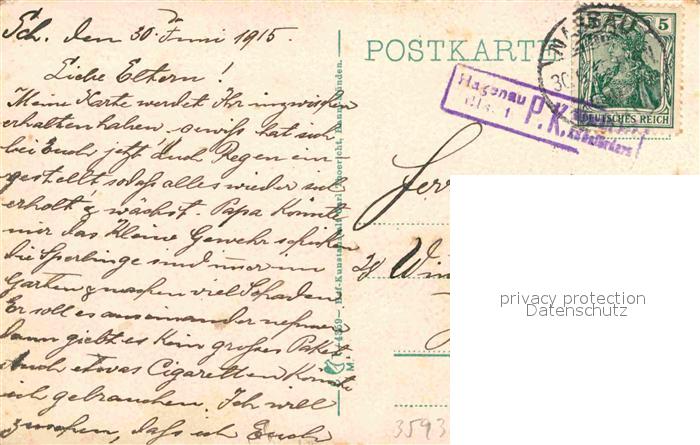 Sch. den 30. Juni 1915.
Liebe Eltern!
Meine Karte werdet Ihr inzwischen
erhalten haben, gewiss hat sich
bei Euch jetzt auch Regen ein
gestellt sodass alles wieder sich
erholt & wächst. Papa könnte
mir das kleine Gewehr schicken
die Sperlinge sind immer im
Garten & machen viel Schaden
Er soll es auseinander nehmen
dann giebt es kein grosses Paket
Auch etwas Cigaretten könnte
ich gebrauchen. Ich will
dass ich Euch
POSTKARTE
NASSAU
30.
5
DEUTSCHES REICH
Hagenau
P.K.
zu befördern
M. 4359 - Hof-Kunstanstalt Carl Spoericht, Hann. Münden.
privacy protection
Datenschutz
3593